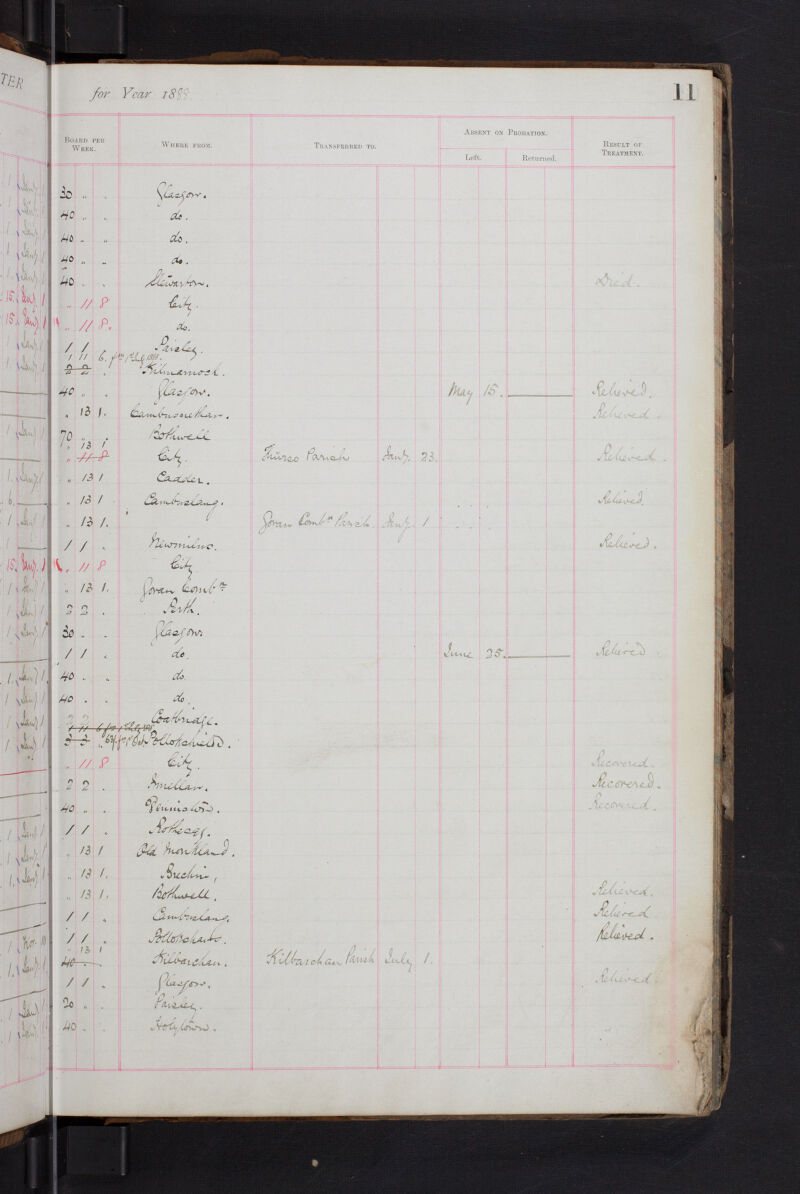 TER
for Year 1888
11
BOARD PER WEEK.
WHERE FROM.
TRANSFERRED TO.
ABSENT ON PROBATION.
Left.
Returned.
RESULT OF TREATMENT.
30 " " Glasgow.
40 " " do.
40 " " do.
40 " " do.
40 " " Stewarton. Died.
" 11 8 City.
" 11 8. do.
1 1 " Paisley.
1 11 6.
2 2 " Kilmarnock.
40 " " Glasgow. May 15. Relieved.
" 13 1. Cambusnethan. Relieved.
70 " " Bothwell
" 13 1
" 11 8 City. Thurso Parish Jany. 23. Relieved.
" 13 1 Cadder.
" 13 1 Cambuslang. Relieved.
" 13 1. Govan Combn Parish Jany. 1
1 1 " Newmilns. Relieved.
" 11 8 City
" 13 1. Govan Combn
2 2 " Perth.
30 " " Glasgow
1 1 " do. June 25. Relieved.
40 " " do.
40 " " do.
2 2 Coatbridge.
1 11 6
3 3 " Pollokshields.
" 11 8 City. Recovered.
2 2 " Recovered.
40 " " Dennistoun. Recovered.
1 1 " Rothesay.
" 13 1 Old Monkland.
" 13 1. Brechin,
" 13 1. Bothwell. Relieved.
1 1 " Cambuslang. Relieved
1 1 " Pollokshaws. Relieved.
" 13 1
40 " " Kilbarchan. Kilbarchan Parish July 1.
1 1 " Glasgow. Relieved.
20 " " Paisley.
40 " " Holytown.